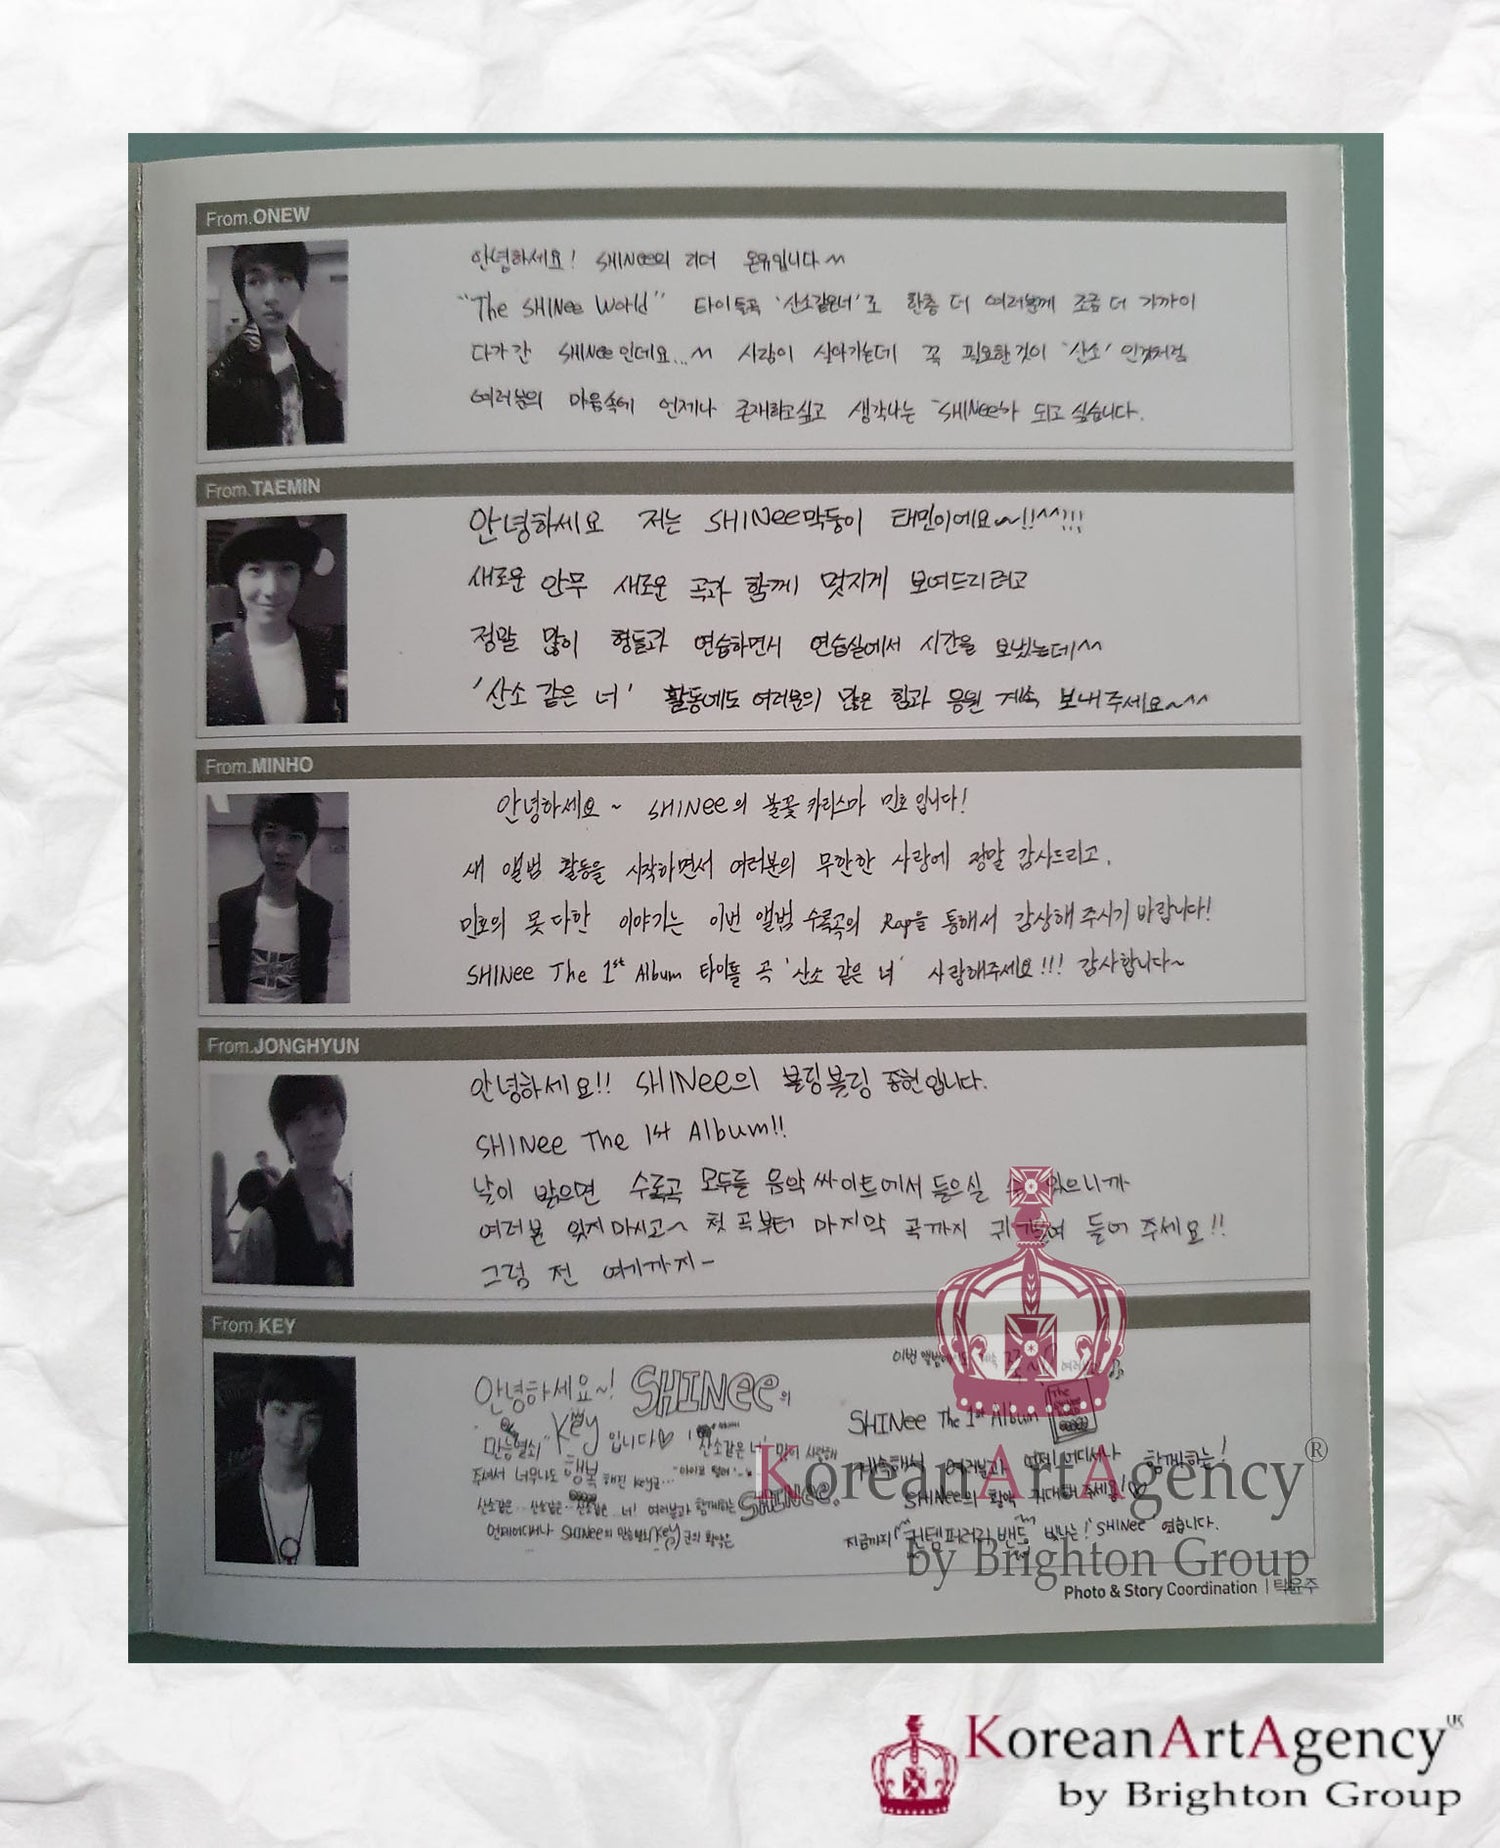 From.ONEW
안녕하세요! SHINee의 리더 온유입니다^^
"The SHINee World" 타이틀곡 '산소같은너'로 한층 더 여러분께 조금 더 가까이
다가간 SHINee인데요...^^ 사람이 살아가는데 꼭 필요한것이 '산소'인것처럼
여러분의 마음속에 언제나 존재하고싶고 생각나는 SHINee가 되고싶습니다.
From.TAEMIN
안녕하세요 저는 SHINee막둥이 태민이에요~!!^^!!!
새로운 안무 새로운 곡과 함께 멋지게 보여드리려고
정말 많이 형들과 연습하면서 연습실에서 시간을 보냈는데^^
'산소 같은 너' 활동에도 여러분의 많은 힘과 응원 계속 보내주세요~^^
From.MINHO
안녕하세요~ SHINee의 불꽃 카리스마 민호입니다!
새 앨범 활동을 시작하면서 여러분의 무한한 사랑에 정말 감사드리고,
민호의 못 다한 이야기는 이번 앨범 수록곡의 Rap을 통해서 감상해 주시기 바랍니다!
SHINee The 1st Album 타이틀 곡 '산소 같은 너' 사랑해주세요!!! 감사합니다~
From.JONGHYUN
안녕하세요!! SHINee의 블링블링 종현입니다.
SHINee The 1st Album!!
날이 밝으면 수록곡 모두를 음악 싸이트에서 들으실 수 있으니까
여러분 잊지마시고~ 첫 곡부터 마지막 곡까지 귀 기울여 들어 주세요!!
그럼 전 여기까지-
From.KEY
안녕하세요~! SHINee의
만능열쇠 Key입니다♡ 산소같은 너' 많이 사랑해
주셔서 너무나도 행복해진 Key군...
산소같은... 산소같은... 산소같은...너! 여러분과 함께하는 SHINee.
언제어디서나 SHINee의 만능열쇠 Key군의 활약은
이번 앨범에서도 계속 여러분
SHINee The 1st Album
계속해서 여러분과 언제 어디서나 함께하는!
SHINee의 활약 기대해 주세요!♡
지금까지 컨템퍼러리 밴드 빛나는! SHINee 였습니다.
Photo & Story Coordination | 탁윤주
KoreanArtAgency®
by Brighton Group
KoreanArtAgency UK
by Brighton Group